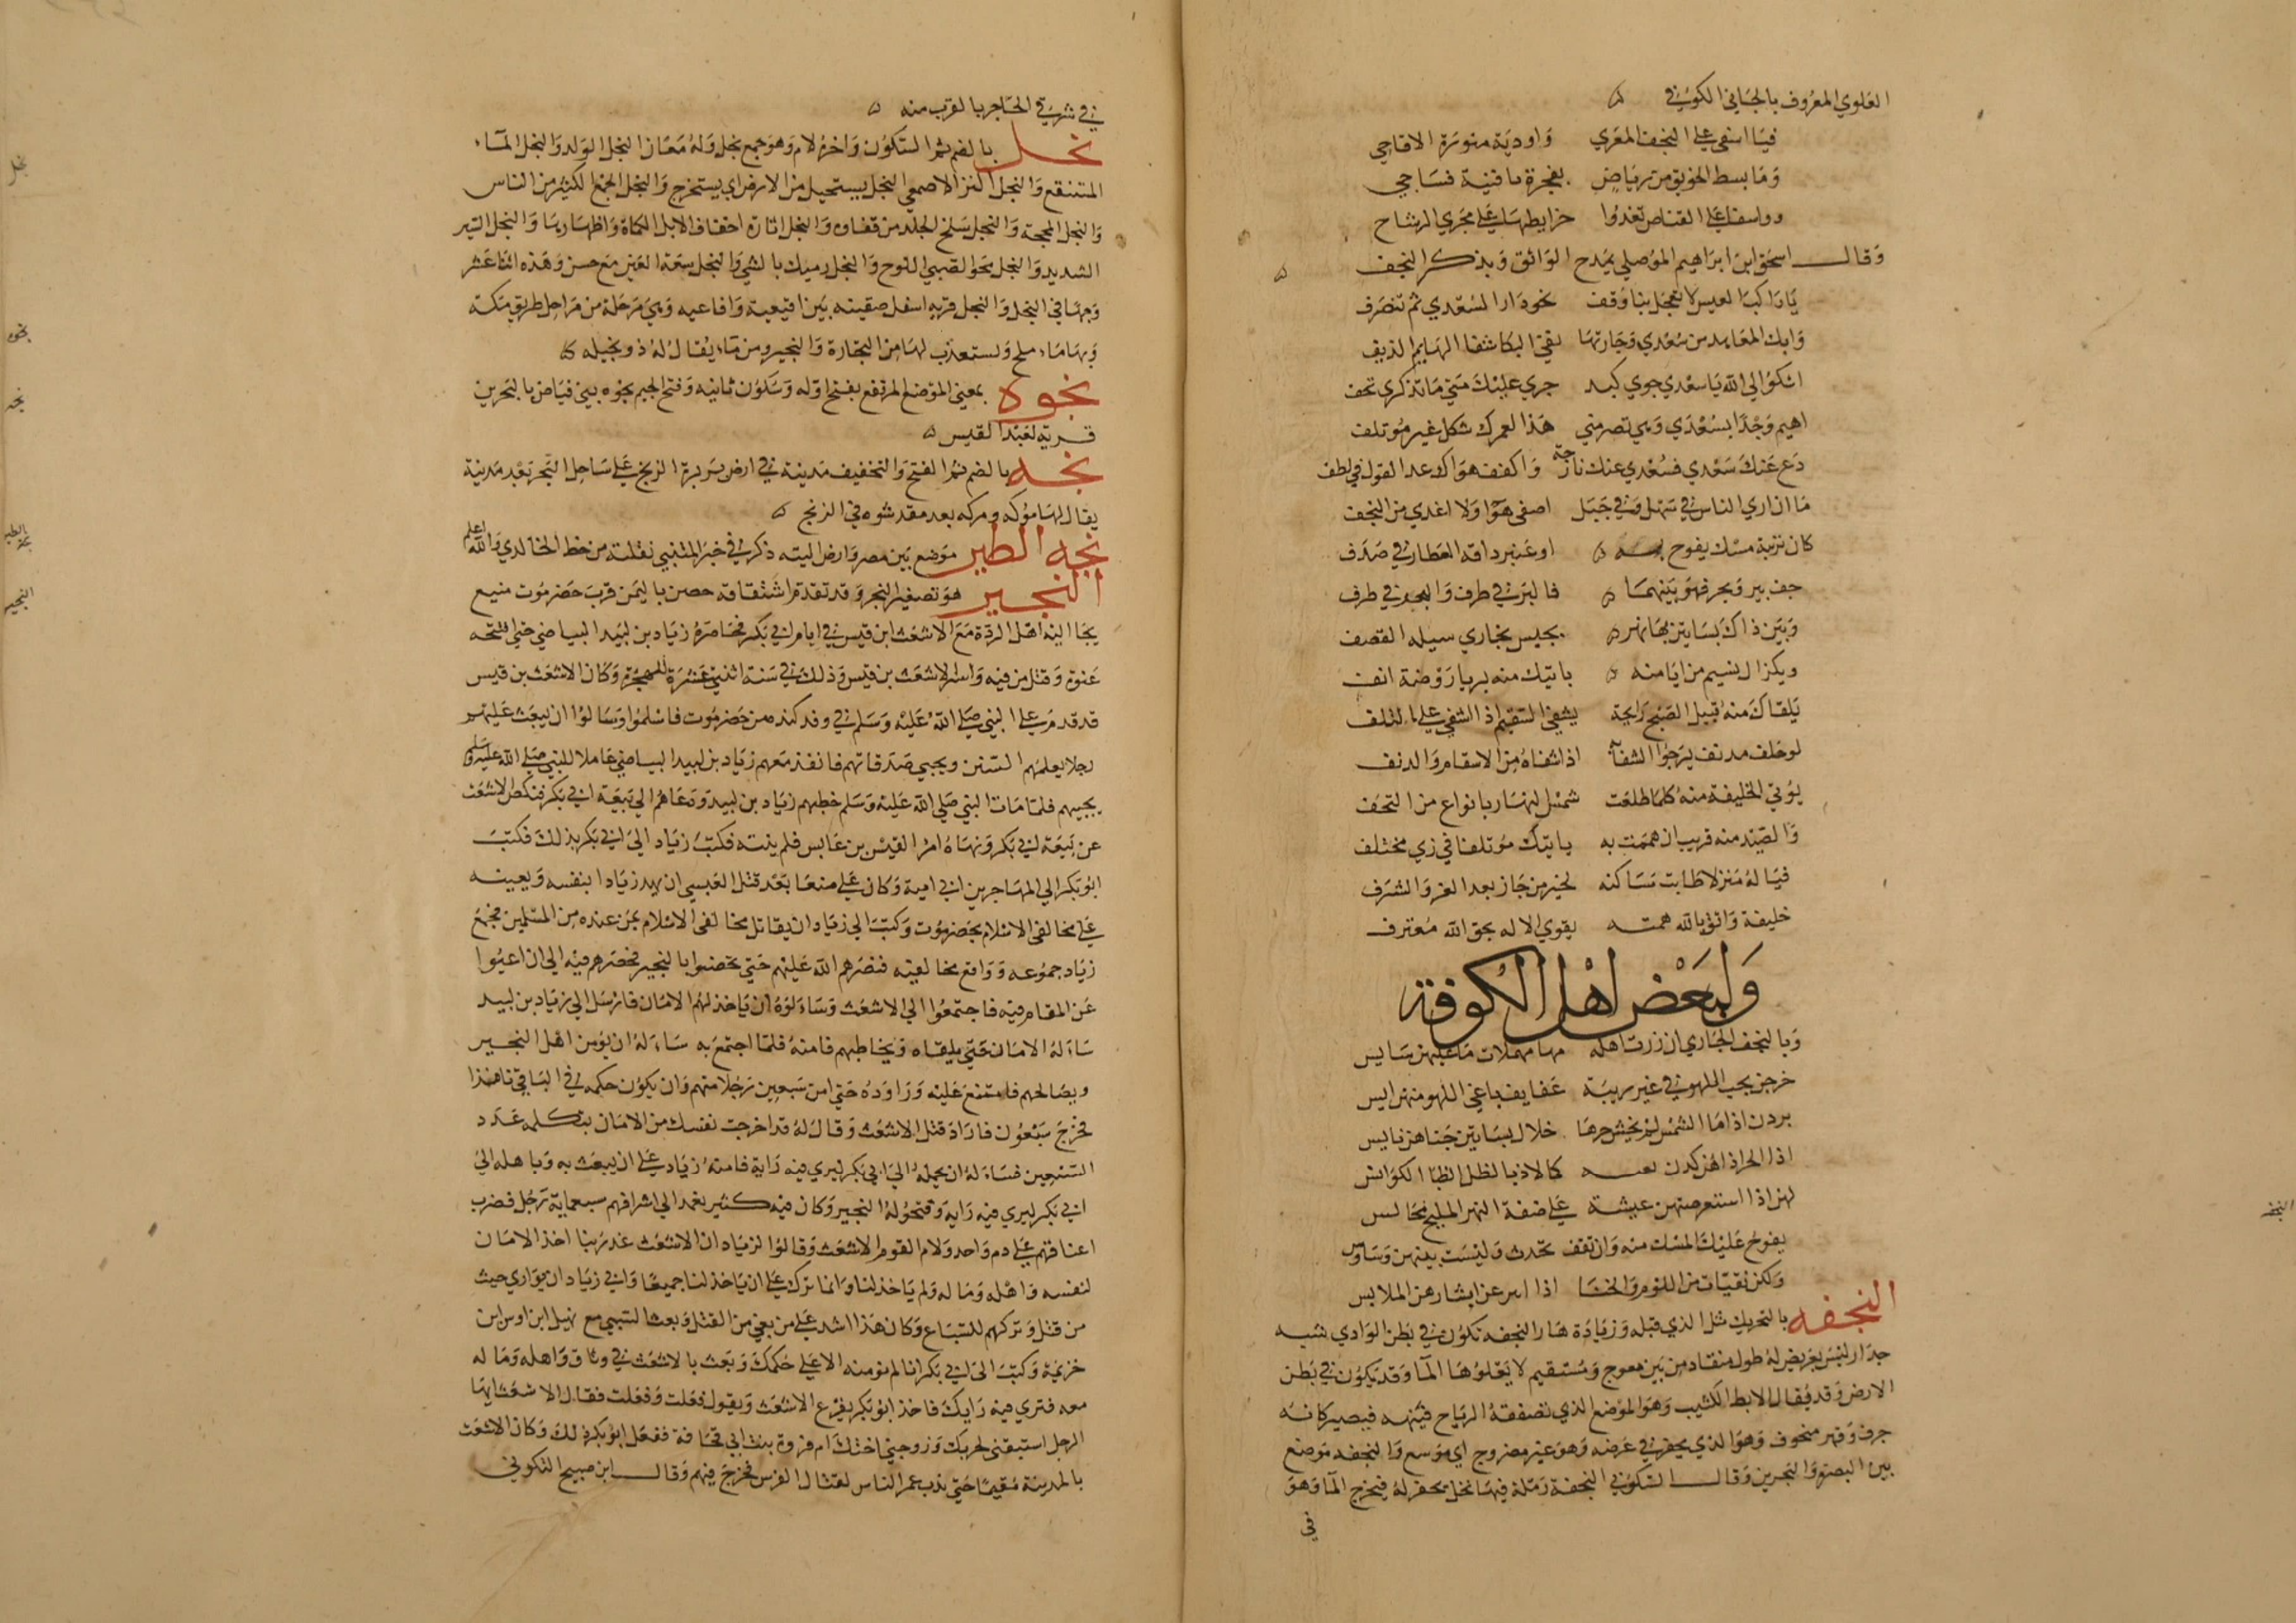 العلوي المعروف بالحماني الكوفي
فيا اسفي علي النجف المعري واودية منورة الاقاحي
وما بسط الخورنق من رياض
وواسفا علي القناص تغدوا خرايطها علي مجري الرشاح
وقال اسحق ابن ابراهيم الموصلي يمدح الواثق ويذكر النجف
يا راكب العيس لا تعجل بنا وقف نحو دارا لسعدي ثم تنصرف
وابك المعاهد من سعدي وجارتها
اشكوا الي الله يا سعدي جوي كبد جري عليك متي ما تذكري تجف
اهيم وجدا بسعدي وهي تصرمني هذا لعمرك شكل غير موتلف
دع عنك سعدي فسعدي عنك نازحة واكفف هواك عد القول في لطف
ما ان اري الناس في سهل وفي جبل اصفي هوا ولا اغدي من النجف
كان تربته مسك يفوح به او عنبر دافه العطار في صدف
حف ببر وبحر فهو بينهما فالبر في طرف والبحر في طرف
وبين ذاك بساتين بها نهر بجيس بجاري سيله القصف
نسيم من ايامنه ياتيك منه بريا روضة انف
يلقاك منه قبيل الصبح رايحة يشفي السقيم اذا اشفي علي التلف
لو حله مدنف يرجوا الشفا به اذا شفاه من الاسقام والدنف
يوتي الخليفة منه كلما طلعت شمس النهار بانواع من التحف
والصيد منه قريب ان هممت به ياتيك موتلفا في زي مختلف
فيا له منزلا طابت مساكنه لخير من حاز بعد العز والشرف
خليفة واثق بالله همته يقوي الاله بحق الله معترف
ولبعض اهل الكوفة
وبالنجف الجاري ان زرت اهله مها مهملات ما عليهن سايس
خرجن بحب اللهو في غير ريبة عفايف باغي اللهو منهن ايس
يردن اذا ما الشمس لم يخش حرها خلال بساتين جناهن يابس
اذا الحر اذاهن كما لاذ بالظل الظبا الكوانس
لهن اذا استعرضتهن عيشة علي ضفة النهر المليح مجالس
يفوح عليك المسك منه وان تقف تحدث وليست بينهن وساوس
ولكن نقيات من اللوم والخنا اذا ابتز عن ابشارهن الملابس
النجفه بالتحريك مثل الذي قبله وزيادة ها النجفه تكون في بطن الوادي شبيه
جدار ليس بعريض له طول منقاد من بين معوج ومستقيم لا يعلوها الما وقد يكون في بطن
الارض وقد يقال لابط الكثيب وهو الموضع الذي تصفقه الرياح فتنجفه فيصير كانه
جرف وقبر منجوف وهو الذي يحفر في عرضه وهو غير مضروج اي موسع والنجفه موضع
بين البصرة والبحرين وقال السكوني النجفة رملة فيها نخل يحفر له فيخرج الما وهو
في
في شرقي الحاجر بالقرب منه
نجل بالضم ثم السكون واخره لام وهو جمع نجل وله معان النجل الولد والنجل الماء
المستنقع والنجل النز الاصمعي النجل يستنجل من الارض اي يستخرج والنجل الجمع الكثير من الناس
والنجل المحجة والنجل سلخ الجلد من قفاه والنجل اثارة اخفاف الابل الكماة واظهارها والنجل السير
الشديد والنجل محو الصبي اللوح والنجل رميك بالشي والنجل سعة العين مع حسن وهذه اثنا عشر
وجها في النجل والنجل قريه اسفل صفينه بين افيعية وافاعيه وهي مرحلة من مراحل طريق مكة
وبها ماء ملح ويستعذب لها من النجارة والنجير ومن ماء يقال له ذو نجيله
نجوه بمعني الموضع المرتفع بفتح اوله وسكون ثانيه وفتح الجيم نجوه بني فياض بالبحرين
قريه لعبد القيس
نجه بالضم ثم الفتح والتخفيف مدينة في ارض بربرة الزنج علي ساحل البحر بعد مدينة
يقال لها مركه ومركه بعد مقدشوه في الزنج
نجه الطير موضع بين مصر وارض التيه ذكر في خبر المتنبي نقلته من خط الخالدي والله اعلم
النجير هو تصغير النجر وقد تقدم اشتقاقه حصن باليمن قرب حضرموت منيع
لجا اليه اهل الردة مع الاشعث ابن قيس في ايام ابي بكر فحاصره زياد بن لبيد البياضي حتي افتتحه
عنوة وقتل من فيه واسر الاشعث بن قيس وذلك في سنة اثنتي عشرة للهجرة وكان الاشعث بن قيس
قد قدم علي النبي صلي الله عليه وسلم في وفد كنده من حضرموت فاسلموا وسالوا ان يبعث عليهم
رجلا يعلمهم السنن ويجبي صدقاتهم فانفذ معهم زياد بن لبيد البياضي عاملا للنبي صلي الله عليه وسلم
يجبيهم فلما مات النبي صلي الله عليه وسلم خطبهم زياد بن لبيد ودعاهم الي بيعة ابي بكر فنكص الاشعث
عن بيعة ابي بكر ونهاه امرا القيس بن عابس فلم ينته فكتب زياد الي ابي بكر بذلك فكتب
ابو بكر الي المهاجر بن ابي امية وكان علي صنعا بعد قتل العبسي ان يمد زيادا بنفسه ويعينه
علي مخالفي الاسلام بحضرموت وكتب الي زياد ان يقاتل مخالفي الاسلام بمن عنده من المسلمين فجمع
زياد جموعه وواقع مخالفيه فنصرهم الله عليهم حتي تحصنوا بالنجير فحصرهم فيه الي ان اعيوا
عن المقام فيه فاجتمعوا الي الاشعث وساءلوه ان ياخذ لهم الامان فارسل الي زياد بن لبيد
ساءله الامان حتي يلقاه ويخاطبهم فامنه فلما اجتمع به ساءله ان يومن اهل النجير
ويصالحهم فامتنع عليه وراوده حتي امن سبعين رجلا منهم وان يكون حكمه في الباقي نافذا
فخرج سبعون فاراد قتل الاشعث وقال له قد اخرجت نفسك من الامان بتكلمه عدد
السبعين فساءله ان يحمله الي ابي بكر ليري فيه رايه فامنه زياد علي ان يبعث به وباهله الي
ابي بكر ليري فيه رايه وفتحوا له النجير وكان فيه كثير فعمد الي اشرافهم سبعماية رجل فضرب
اعناقهم علي دم واحد ولام القوم الاشعث وقالوا لزياد ان الاشعث غدر بنا اخذ الامان
لنفسه واهله وماله ولم ياخذ لنا وانما نزل علي ان ياخذ لنا جميعا وابي زياد ان يواري جيث
من قتل وتركهم للسباع وكان هذا اشد علي من بقي من القتل وبعث السبي مع نهيل ابن اوس ابن
خزيمة وكتب الي ابي بكر انا لم نومنه الا علي حكمك وبعث بالاشعث في وثاق واهله وماله
معه فتري فيه رايك فاخذ ابو بكر يقرع الاشعث ويقول فعلت وفعلت فقال الاشعث ايها
الرجل استبقني لحربك وزوجني اختك ام فروة بنت ابي قحافة ففعل ابو بكر ذلك وكان الاشعث
بالمدينة مقيما حتي ندب عمر الناس لقتال الفرس فخرج فيهم وقال ابن صبيح السكوني
نجل
نجوه
نجه
نجه الطير
النجير
النجفه